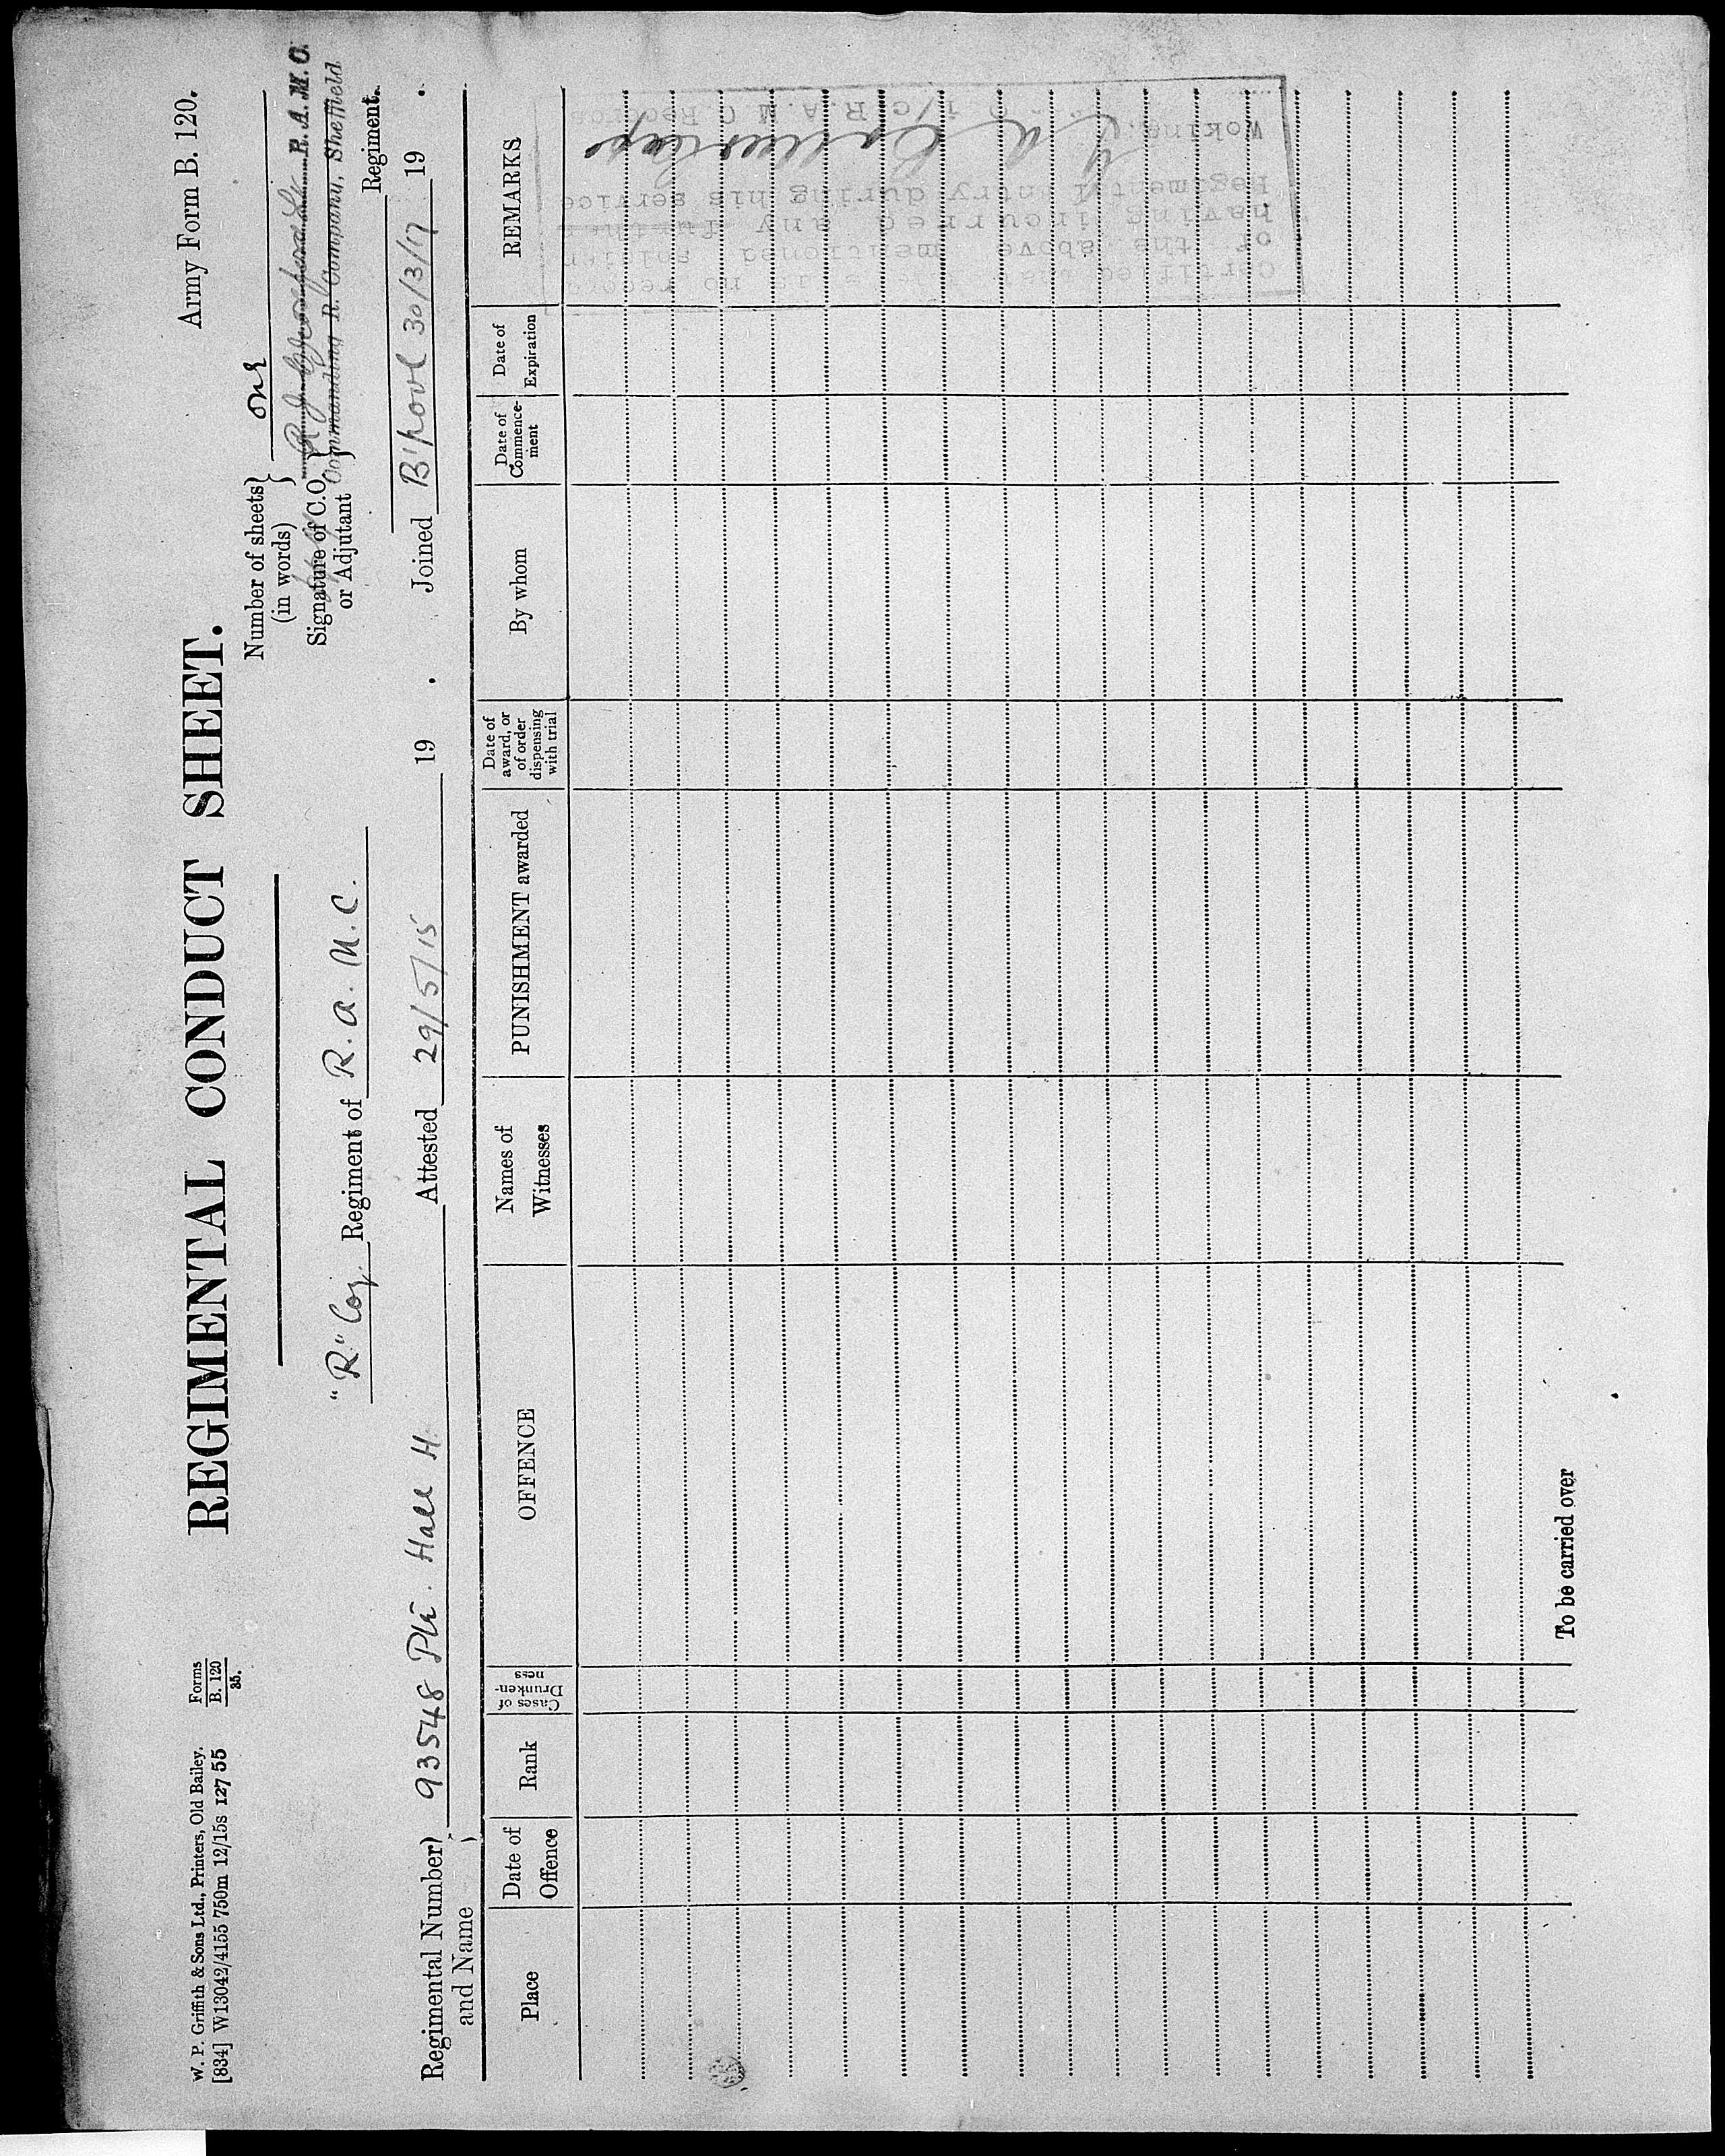 W. P. Griffith & Sons Ltd., Printers, Old Bailey.
[834] W13042/4155 750m 12/15s 127 55
Forms
B. 120
35.
Army Form B. 120.
REGIMENTAL CONDUCT SHEET.
Number of sheets
(in words)
one
Signature of C.O.
or Adjutant
R. A. M. C.
Commanding R. Company, Sheffield
"R." Coy. Regiment of R. a. M. C.
Regiment.
Regimental Number
and Name
93548 Pte. Hall H. Attested 29/5/15 19 . Joined B'pool 30/3/17 19 .
Place
Date of
Offence
Rank
Cases of
Drunken-
ness
OFFENCE
Names of
Witnesses
PUNISHMENT awarded
Date of
award, or
of order
dispensing
with trial
By whom
Date of
Commence-
ment
Date of
Expiration
REMARKS
Certified that there is no record
of the above mentioned soldier
having incurred any further
Regimental entry during his service
Woking.
i/c R.A.M.C Records
To be carried over